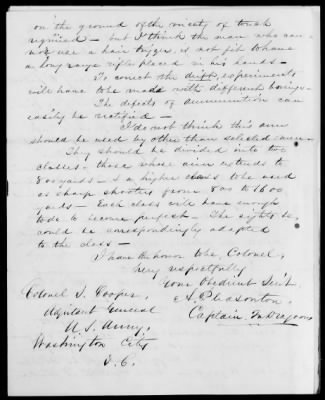 on the ground of the nicety of touch
required — but I think the man who can-
not use a hair trigger, is not fit to have
a long range rifle placed in his hands —
To correct the drift, experiments
will have to be made with different
The defects of ammunition can
easily be rectified —
I do not think this arm
should be used by other than selected men —
They should be divided into two
classes — those whose aim extends to
800 yards — & a higher class to be used
as sharp shooters from 800 to 1600
yards — Each class will have enough
to do to become perfect — The sights to,
could be correspondingly adapted
to the class —
I have the honor to be, Colonel,
Very respectfully
Your Obedient Servt.
A. Pleasonton,
Captain, 2d Dragoons
Colonel S. Cooper,
Adjutant General
U. S. Army,
Washington City
D. C.